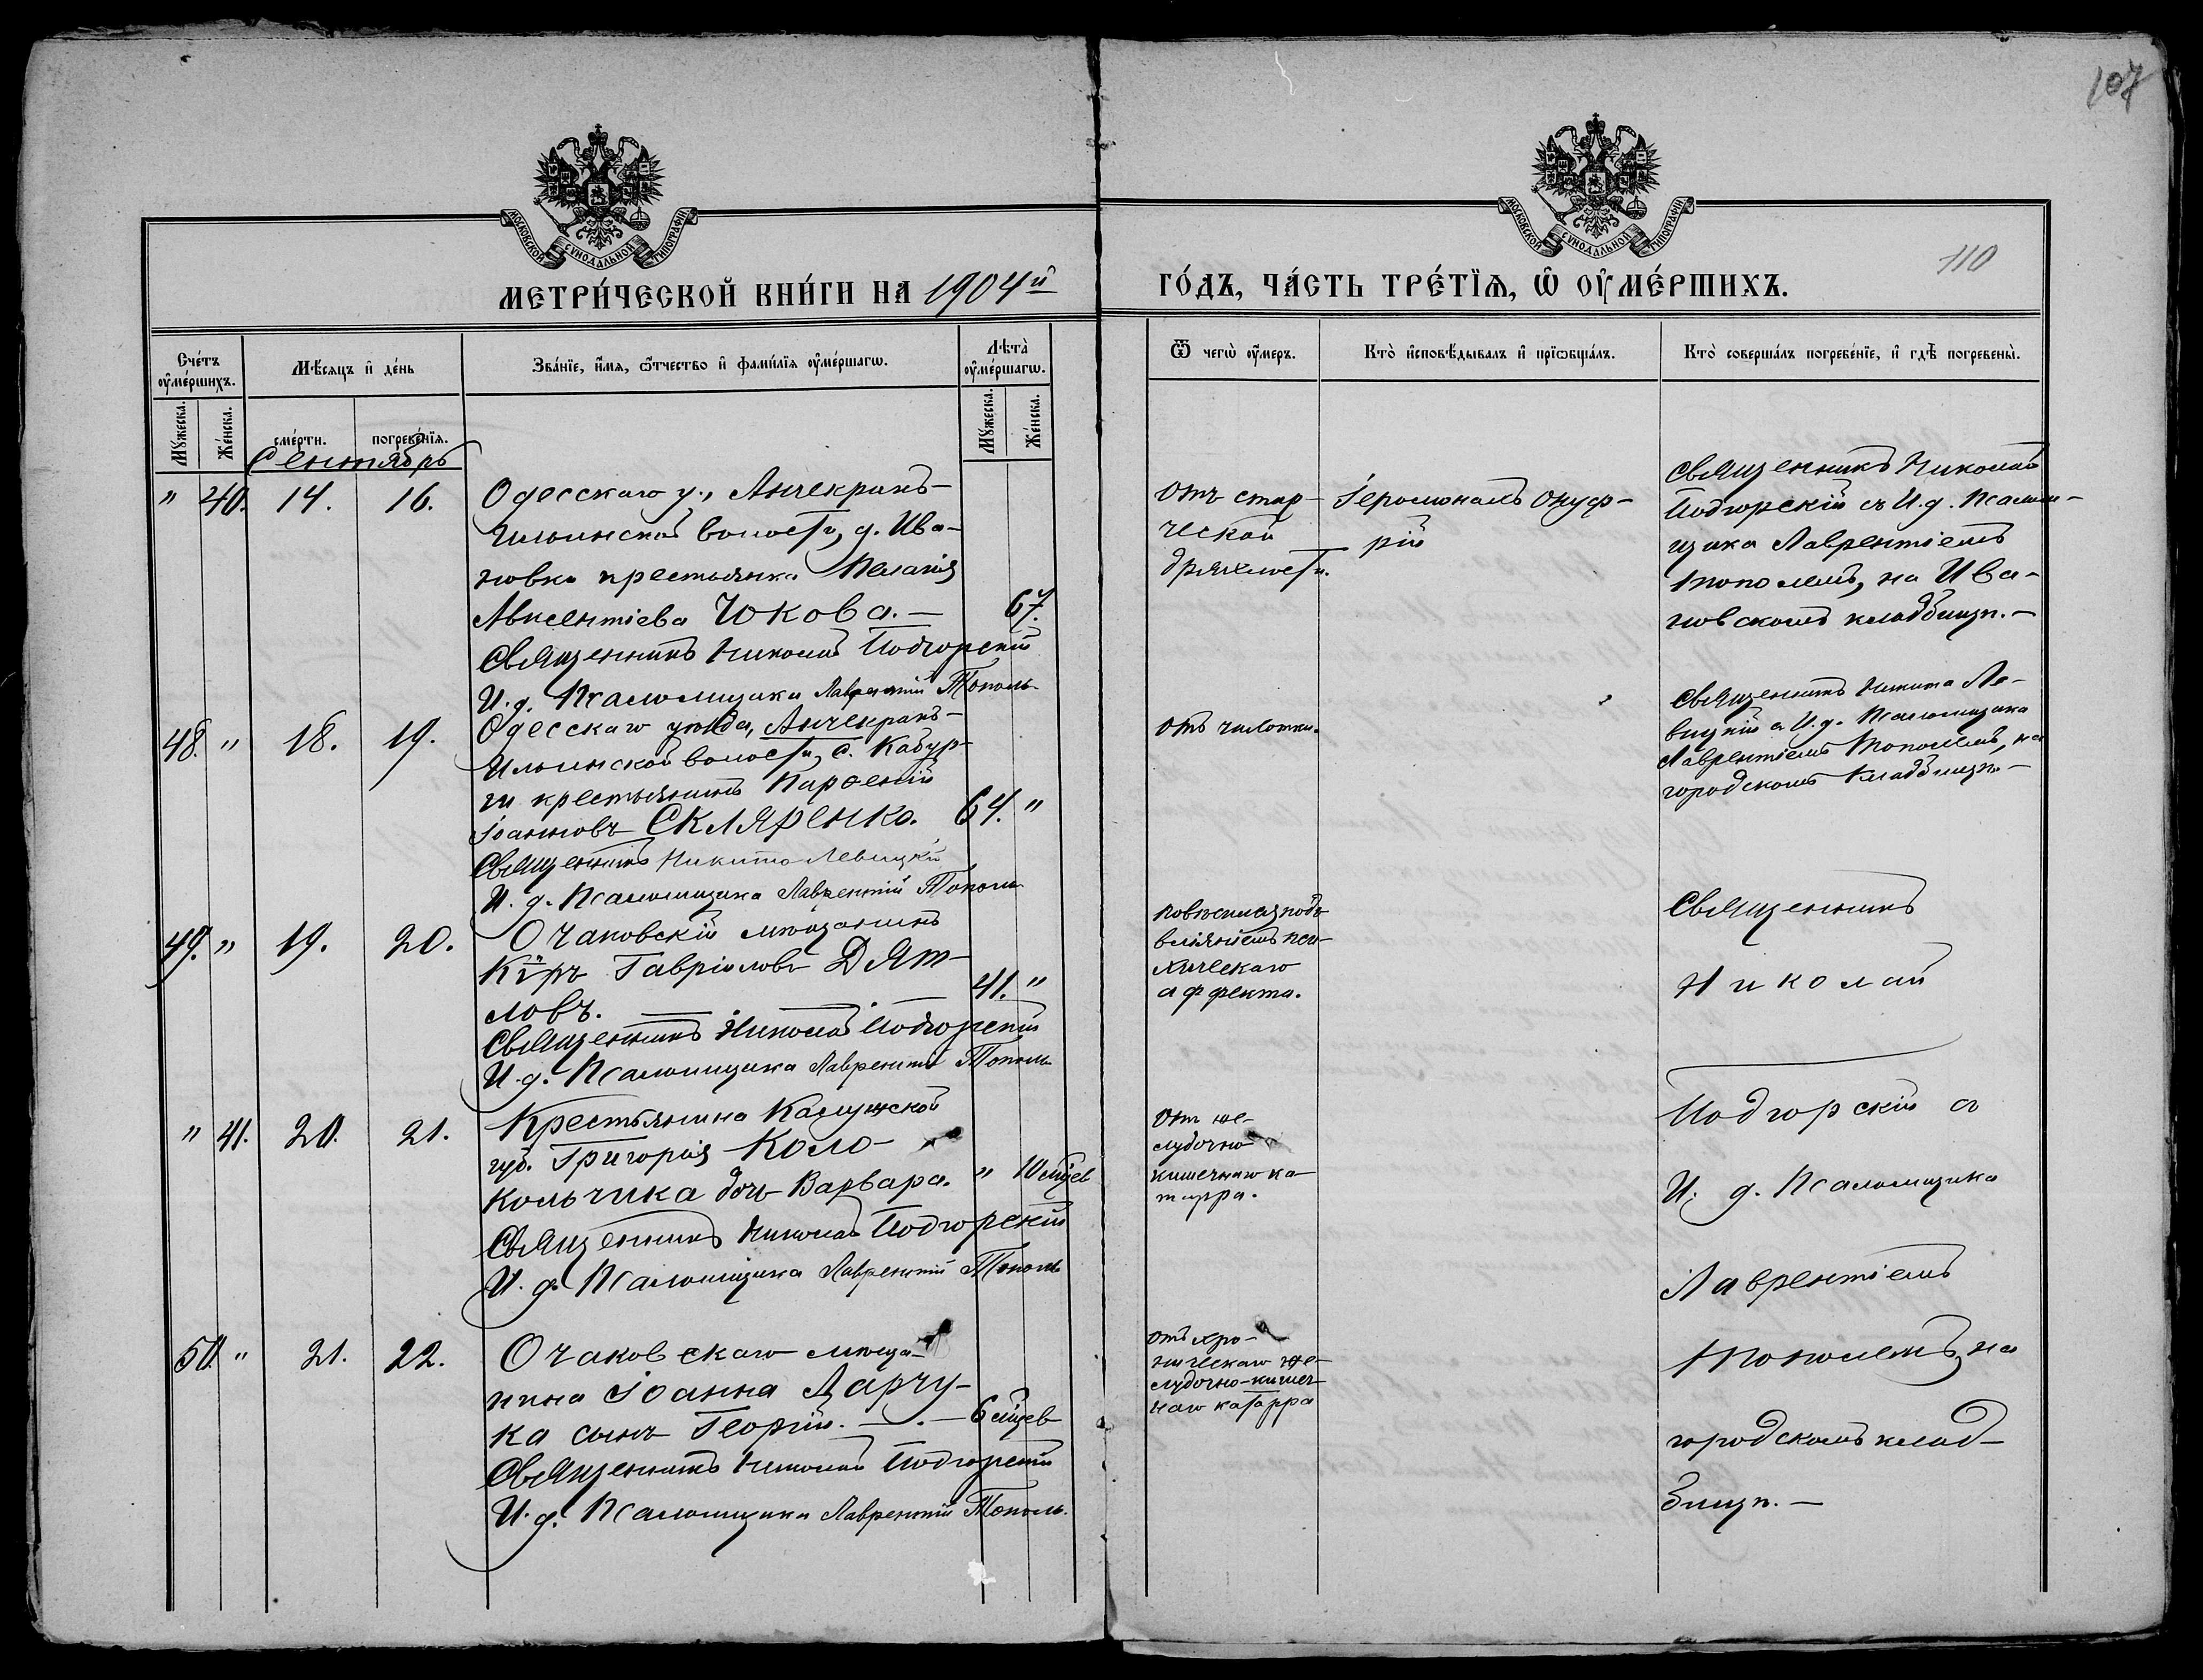 107
110
МОСКОВСКОЙ СѴНОДАЛЬНОЙ ТИПОГРАФІИ
МОСКОВСКОЙ СѴНОДАЛЬНОЙ ТИПОГРАФІИ
МЕТРИ́ЧЕСКОЙ КНИ́ГИ НА 1904й
ГО́ДЪ, ЧА́СТЬ ТРЕ́ТЇѦ, Ѡ҆ ОУ҆МЕ́РШИХЪ.
Сче́тъ оу҆ме́ршихъ.
Мѣ́сяцъ и҆ де́нь
Зва́нїе, и҆́мѧ, ѻ҆́тчество и҆ фами́лїѧ оу҆ме́ршагѡ.
Лѣта̀ оу҆ме́ршагѡ.
Ѿ чегѡ̀ оу҆́меръ.
Кто̀ и҆сповѣ́дывалъ и҆ прїѡбща́лъ.
Кто̀ соверша́лъ погребе́нїе, и҆ гдѣ̀ погребены̀.
Мꙋ́жеска.
Же́нска.
сме́рти.
погребе́нїѧ.
Мꙋ́жеска.
Же́нска.
Сентябрь
" 40. 14. 16.
Одесскаго у., Анчекракъ-
Ильинской волости, д. Ива-
новки крестьянка Пелагія
Авксентіева Чокова. — 67.
Священникъ Николай Подгорскій
И. д. Псаломщика Лаврентій Тополь
отъ стар-
ческой
дряхлости.
Іеромонахъ Онуф-
рій
Священникъ Николай
Подгорскій съ И. д. Псалом-
щика Лаврентіемъ
Тополемъ, на Ива-
новскомъ кладбищѣ. —
48. " 18. 19.
Одесскаго уѣзда, Анчекракъ-
Ильинской волости, с. Кабур-
ги крестьянинъ Парѳеній
Іоанновъ Скляренко. 64. "
Священникъ Никита Левицкій
И. д. Псаломщика Лаврентій Тополь
отъ чахотки.
Священникъ Никита Ле-
вицкій съ И. д. Псаломщика
Лаврентіемъ Тополемъ, на
городскомъ кладбищѣ. —
49. " 19. 20.
Очаковскій мѣщанинъ
Кѵръ Гавріиловъ Дят-
ловъ. — 41. "
Священникъ Николай Подгорскій
И. д. Псаломщика Лаврентій Тополь
повѣсился подъ
вліяніемъ пси-
хическаго
аффекта.
Священникъ
Николай
" 41. 20. 21.
Крестьянина Калужской
губ. Григорія Коло-
кольчика дочь Варвара. " 10 мѣцев
Священникъ Николай Подгорскій
И. д. Псаломщика Лаврентій Тополь
отъ же-
лудочно
кишечнаго ка-
тарра.
Подгорскій съ
И. д. Псаломщика
Лаврентіемъ
50. " 21. 22.
Очаковскаго мѣща-
нина Іоанна Дарчу-
ка сынъ Георгій. — . — 6 мѣцев
Священникъ Николай Подгорскій
И. д. Псаломщика Лаврентій Тополь.
отъ хро-
ническаго же-
лудочно-кишеч-
наго катарра
Тополемъ, на
городскомъ клад-
бищѣ. —